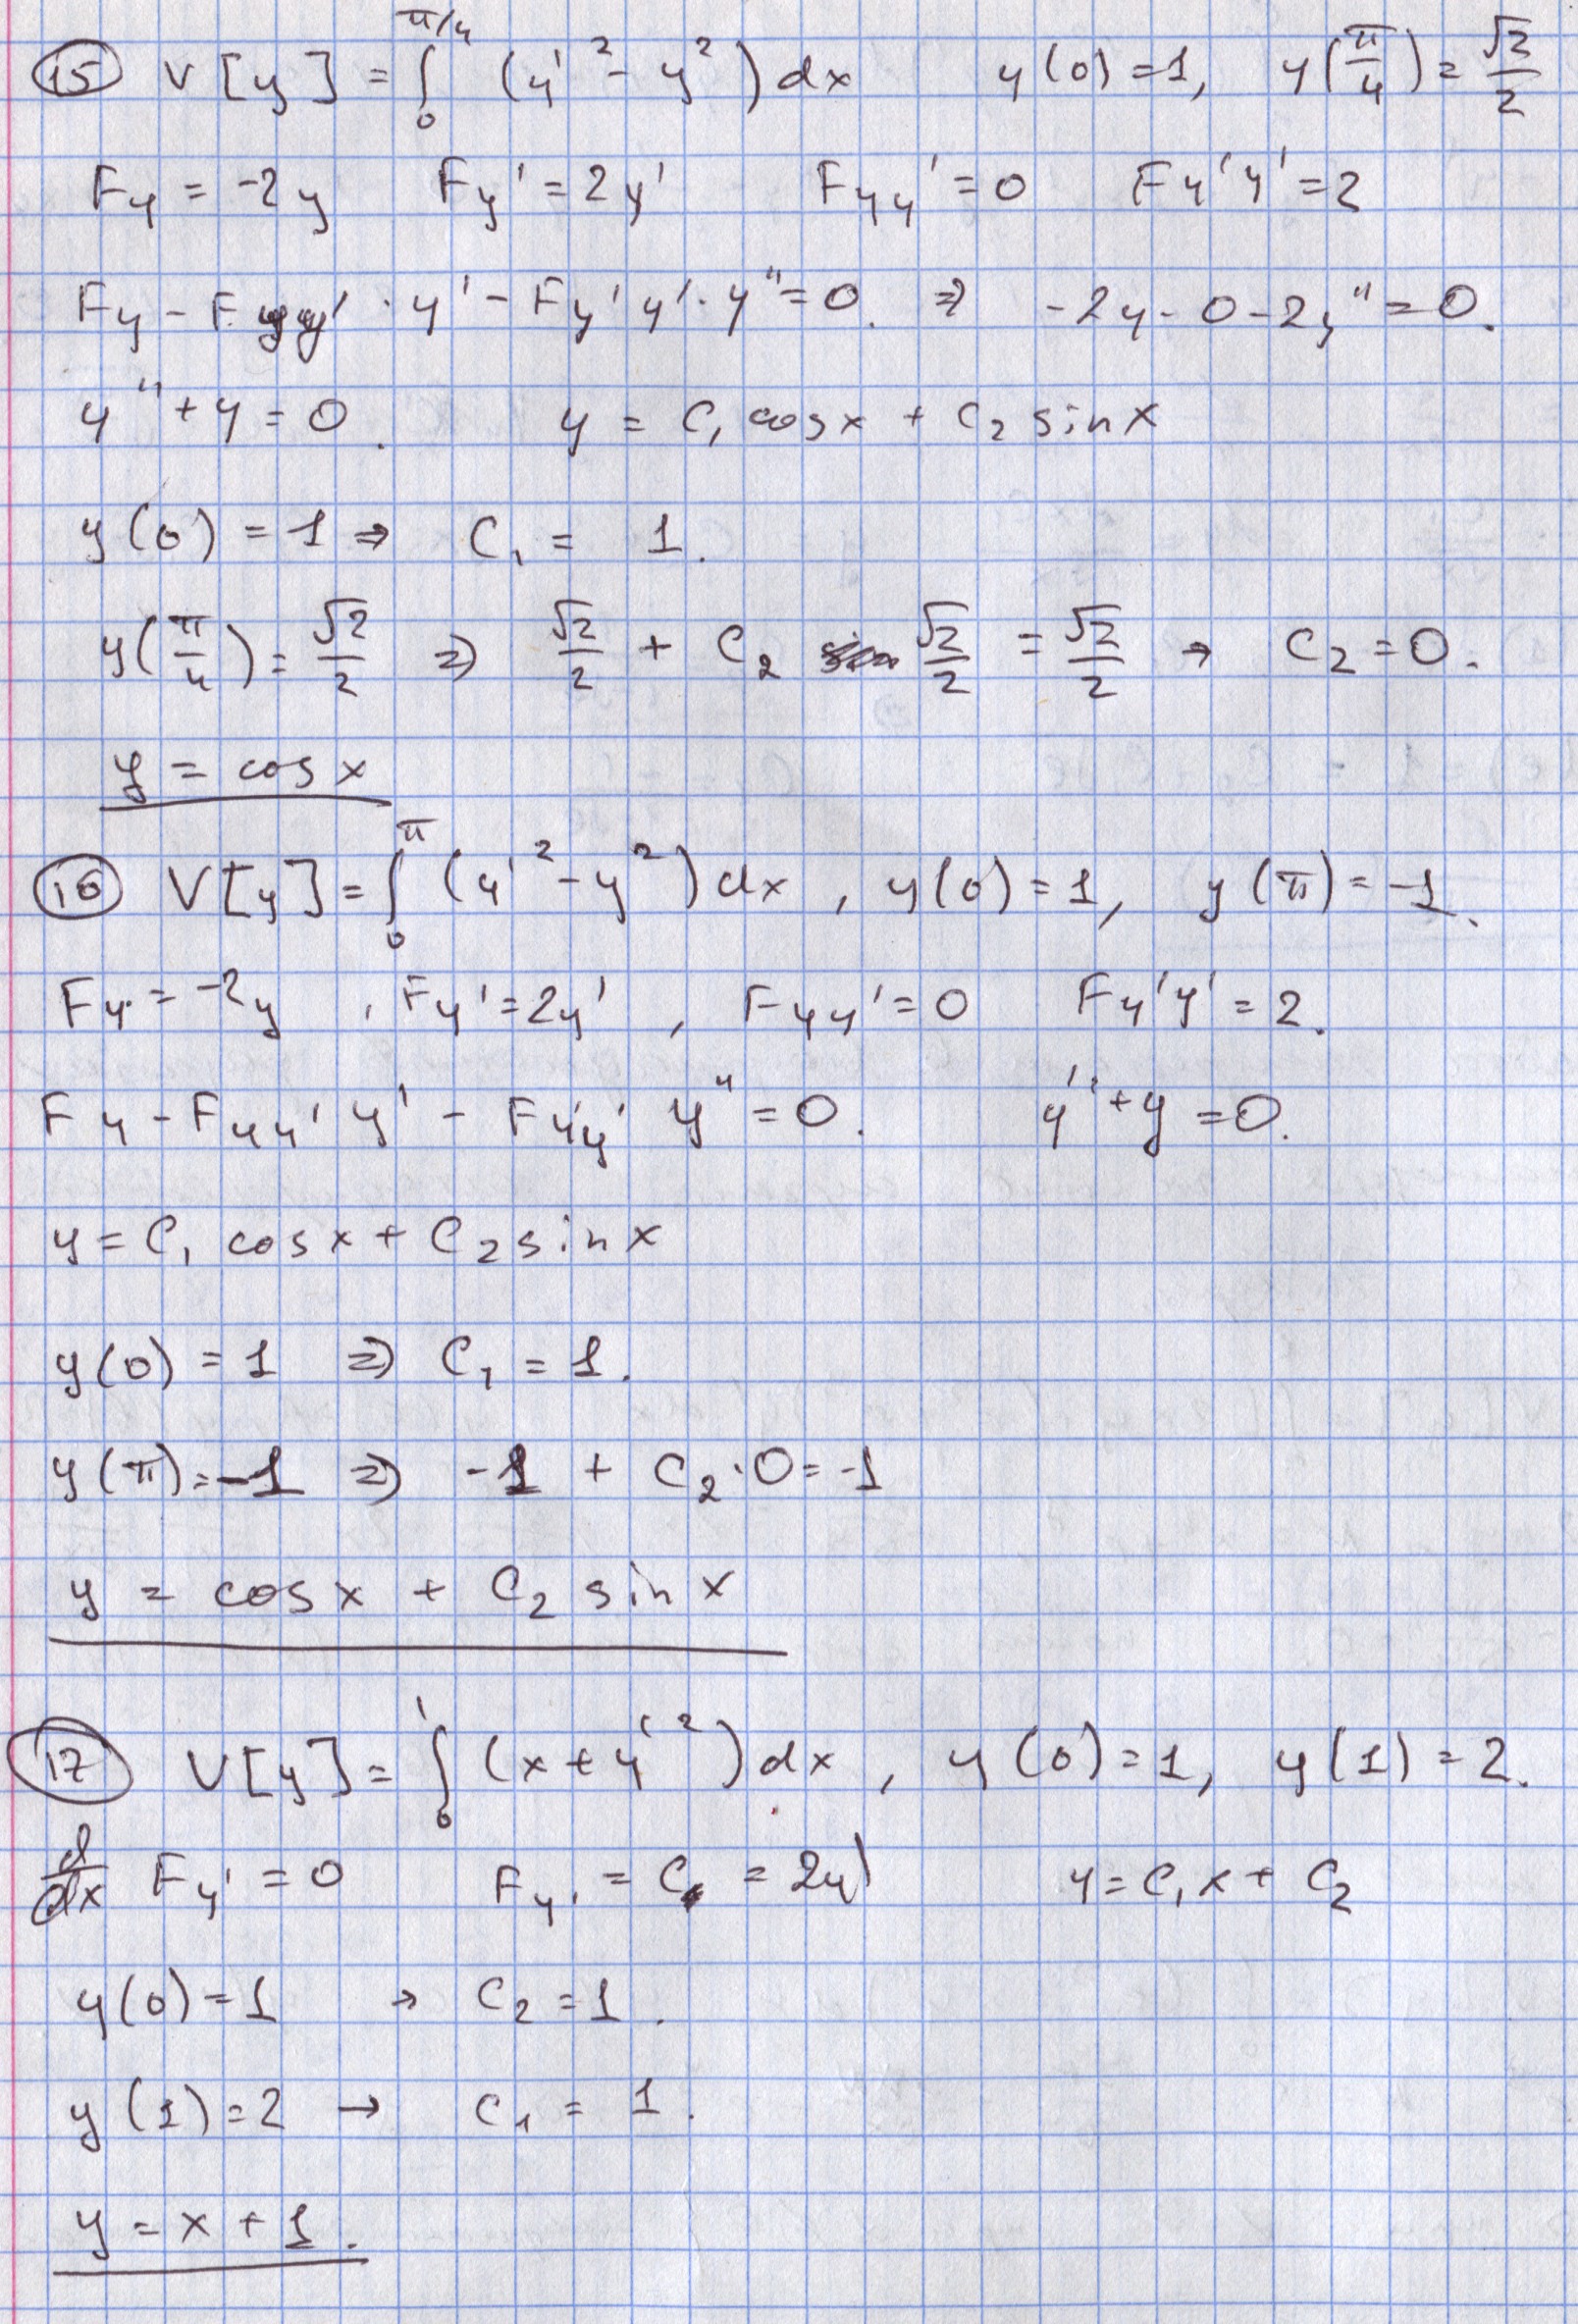 15 V[y] = ∫₀^{π/4} (y'² - y²) dx y(0) = 1, y(π/4) = √2/2
F_y = -2y F_y' = 2y' F_yy' = 0 F_y'y' = 2
F_y - F_yy' · y' - F_y'y' · y'' = 0. ⇒ -2y - 0 - 2y'' = 0.
y'' + y = 0. y = C₁ cos x + C₂ sin x
y(0) = 1 ⇒ C₁ = 1.
y(π/4) = √2/2 ⇒ √2/2 + C₂ √2/2 = √2/2 → C₂ = 0.
y = cos x
16 V[y] = ∫₀^π (y'² - y²) dx, y(0) = 1, y(π) = -1.
F_y = -2y, F_y' = 2y', F_yy' = 0 F_y'y' = 2.
F_y - F_yy' y' - F_y'y' y'' = 0. y'' + y = 0.
y = C₁ cos x + C₂ sin x
y(0) = 1 ⇒ C₁ = 1.
y(π) = -1 ⇒ -1 + C₂ · 0 = -1
y = cos x + C₂ sin x
17 V[y] = ∫₀^1 (x + y'²) dx, y(0) = 1, y(1) = 2.
d/dx F_y' = 0 F_y' = C = 2y' y = C₁x + C₂
y(0) = 1 → C₂ = 1.
y(1) = 2 → C₁ = 1.
y = x + 1.